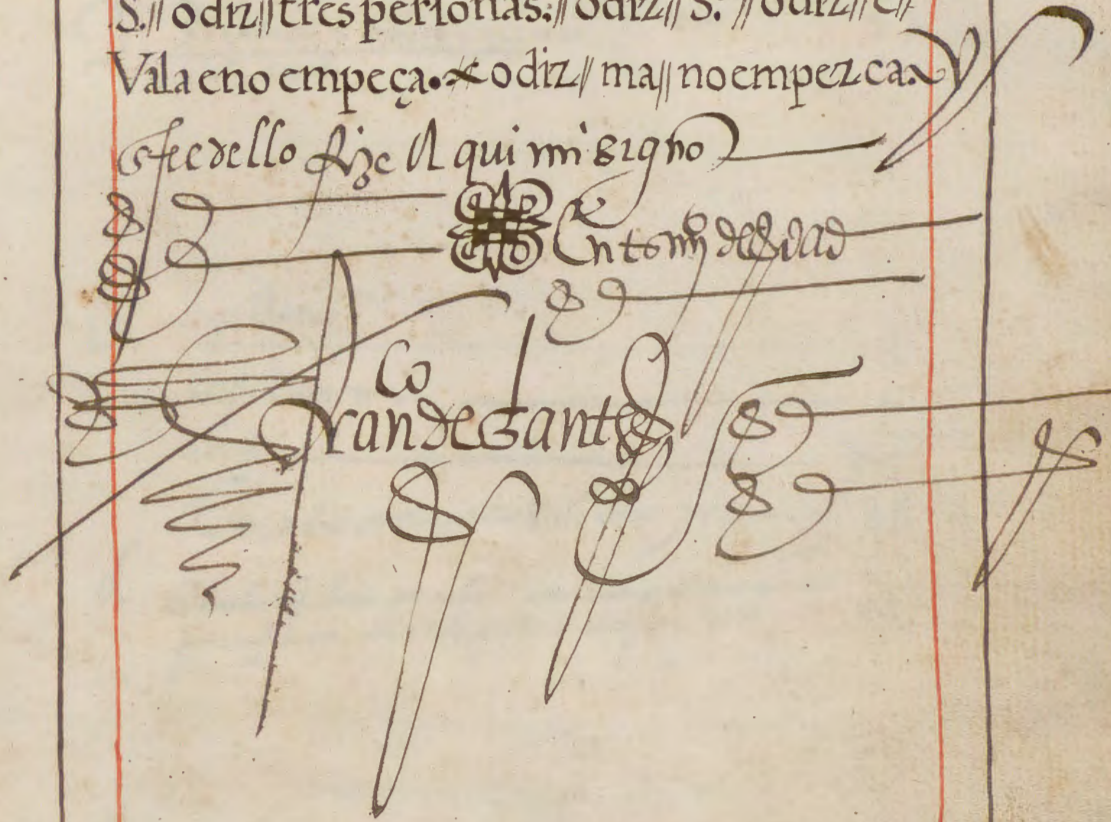 S.// odiz// tres personas.// odiz// S. // odiz// e//
Vala e no empeça. odiz// ma// no empezca.
E fee dello fize Aqui mi signo
En to mıº de Vdad
Co
Juan de Gante